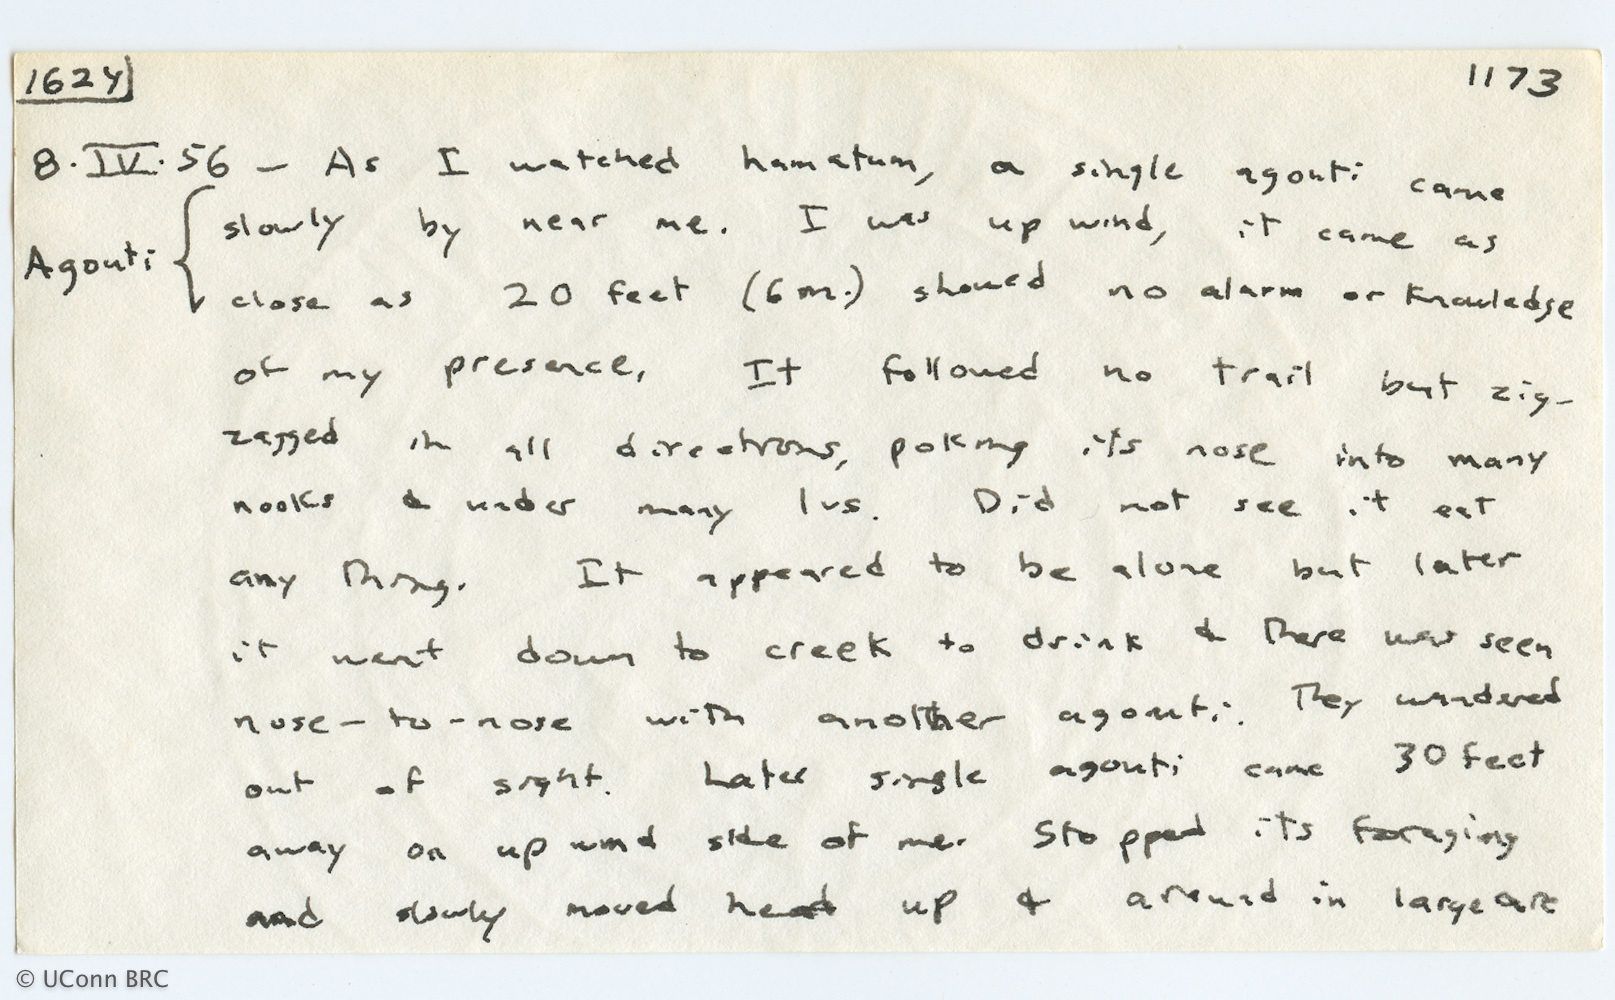 1624 1173
8.IV.56 - As I watched hamatum, a single agouti came
slowly by near me. I was up wind, it came as
Agouti
close as 20 feet (6 m.) showed no alarm or knowledge
of my presence, It followed no trail but zig-
zagged in all directions, poking its nose into many
nooks & under many lvs. Did not see it eat
any thing. It appeared to be alone but later
it went down to creek to drink & there was seen
nose-to-nose with another agouti. They wandered
out of sight. Later single agouti came 30 feet
away on up wind side of me. Stopped its foraging
and slowly moved head up & around in large arc
© UConn BRC